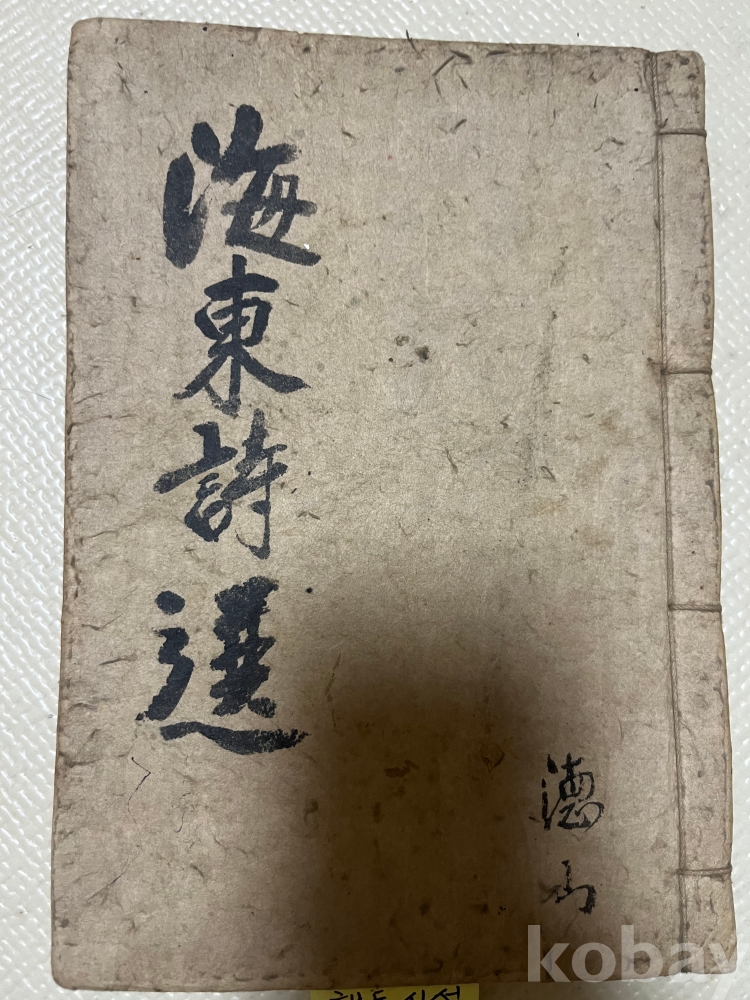 海東詩選
德山
해동시선
kobay